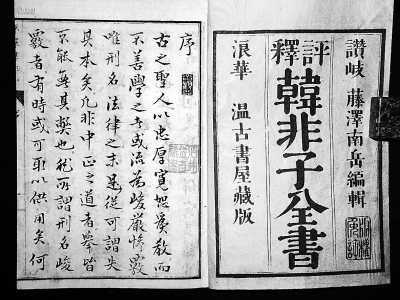 讃岐 藤澤南岳編輯
評釋 韓非子全書
浪華 温古書屋藏版
序
古之聖人以忠厚寬恕爲教而
不善學之者或流爲峻嚴慘覈
唯刑名法律之末是從可謂失
其本矣凡非中正之道者舉皆
不能無其弊也然所謂刑名峻
覈者有時或可取以供用矣何